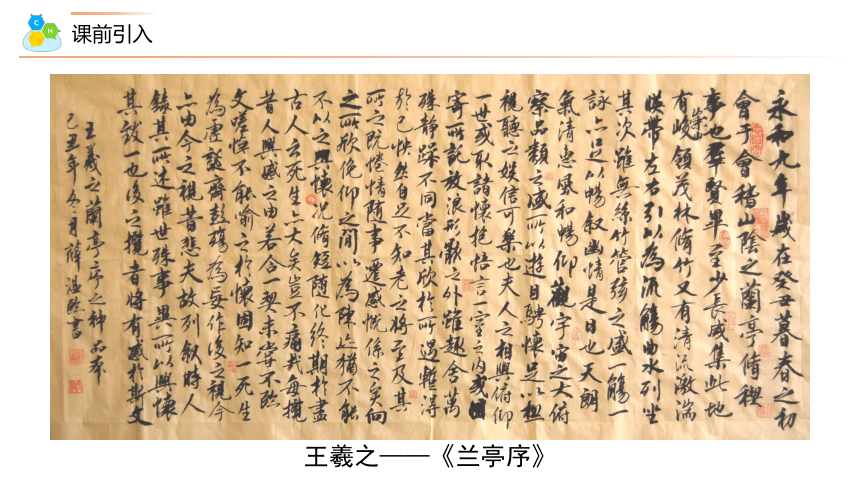 课前引入
C
H
永和九年歲在癸丑暮春之初
會于會稽山陰之蘭亭脩禊
事也羣賢畢至少長咸集此地
有崇山峻領茂林脩竹又有清流激湍
暎帶左右引以為流觴曲水列坐
其次雖無絲竹管弦之盛一觴一
詠亦足以暢敘幽情是日也天朗
氣清惠風和暢仰觀宇宙之大俯
察品類之盛所以遊目騁懷足以極
視聽之娛信可樂也夫人之相與俯仰
一世或取諸懷抱悟言一室之內或因
寄所託放浪形骸之外雖趣舍萬
殊靜躁不同當其欣於所遇暫得
於己怏然自足不知老之將至及其
所之既惓情隨事遷感慨係之矣向
之所欣俛仰之間以為陳迹猶不能
不以之興懷況脩短隨化終期於盡
古人云死生亦大矣豈不痛哉每攬
昔人興感之由若合一契未嘗不臨
文嗟悼不能喻之於懷固知一死生
為虛誕齊彭殤為妄作後之視今
亦由今之視昔悲夫故列敘時人
錄其所述雖世殊事異所以興懷
其致一也後之攬者將有感於斯文
王羲之蘭亭序之神品
己丑年冬月薛臨書
王羲之——《兰亭序》